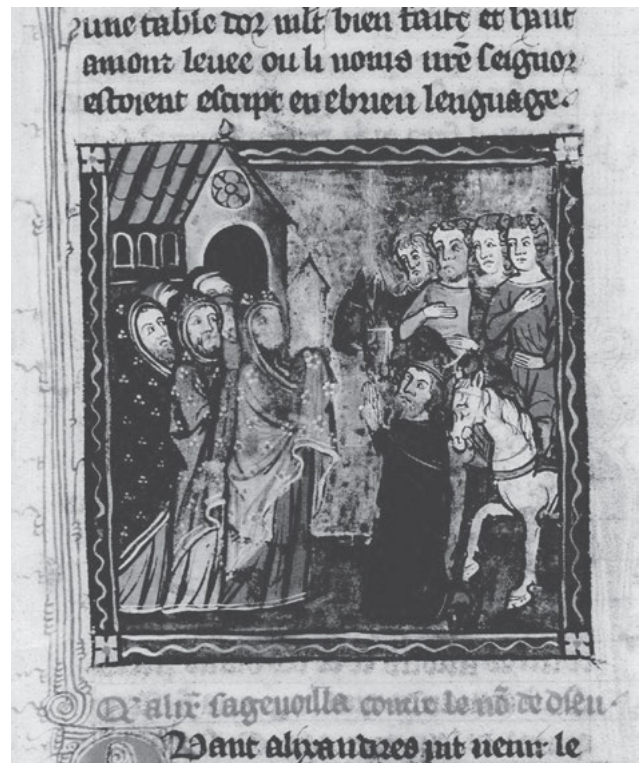 une table dor mlt bien faite et haut
amont leuee ou li noms nrē seignor
estoient escript en ebrieu lenguage.
Q̄ alix̄ sagenoilla contre le nō de dieu.
Qant alixandres uit uenir le